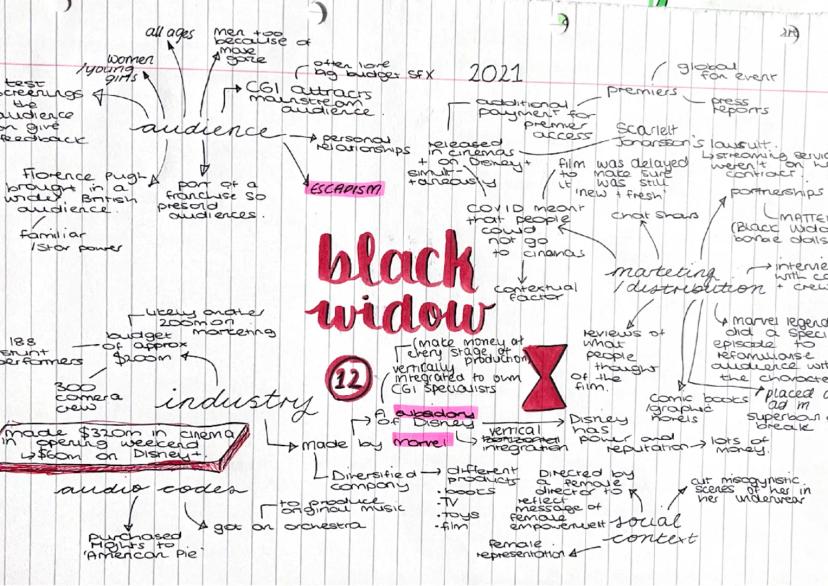 all ages
men too
because of
male
gaze
women
/young
girls
test
screenings
the
audience
can give
feedback
audience
CGI attracts
mainstream
audience.
often love
big budget SFX
personal
relationships
ESCAPISM
part of a
franchise so
presold
audiences.
Florence Pugh
brought in a
wider British
audience.
familiar
/star power
2021
additional
payment for
premier
access
released
in cinemas
+ on Disney+
simult-
taneously
premiers
global
fan event
press
reports
Scarlett
Johansson's lawsuit.
streaming
weren't on
contract.
film was delayed
to make sure
it was still
'new + fresh'
COVID meant
that people
could
not go
to cinemas
contextual
factor
chat shows
partnerships
(Black
marketing
/distribution
reviews of
what
people
thought
of the
film.
comic books
/graphic
novels
marvel
did a
episode to
audience
placed
ad in
break
black
widow
12
likely another
200m on
marketing
budget
of approx
$200m
188
stunt
performers
300
camera
crew
industry
made $320m in cinema
in opening weekend
$60m on Disney+.
made by
marvel
A
of Disney
vertically
integrated to own
CGI specialists
(make money at
every stage of
production)
vertical
integration
Disney
has
power and
reputation
lots of
money.
Diversified
company
different
products
·books
·TV
·toys
·film
audio codes
purchased
rights to
'American Pie'
got an orchestra
to produce
original music
Directed by
a female
director to
reflect
message of
female
empowerment
social
context
cut misogynistic
scenes of her in
her underwear
female
representation